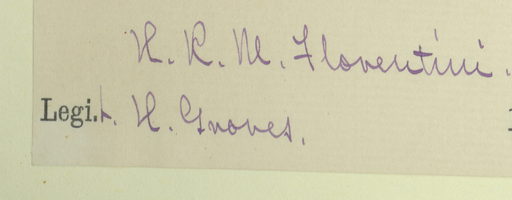 H. R. M. Florentini.
Legi.t. H. Groves.